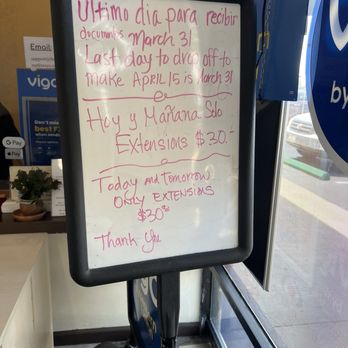 Ultimo dia para recibir
documents March 31
Last day to drop off to
make APRIL 15 is March 31
Hoy y Mañana Solo
Extensions $30.-
Today and Tomorrow
ONLY EXTENSIONS
$30
Thank You
Email:
vigo
Don't miss
best F
G Pay
Pay
by